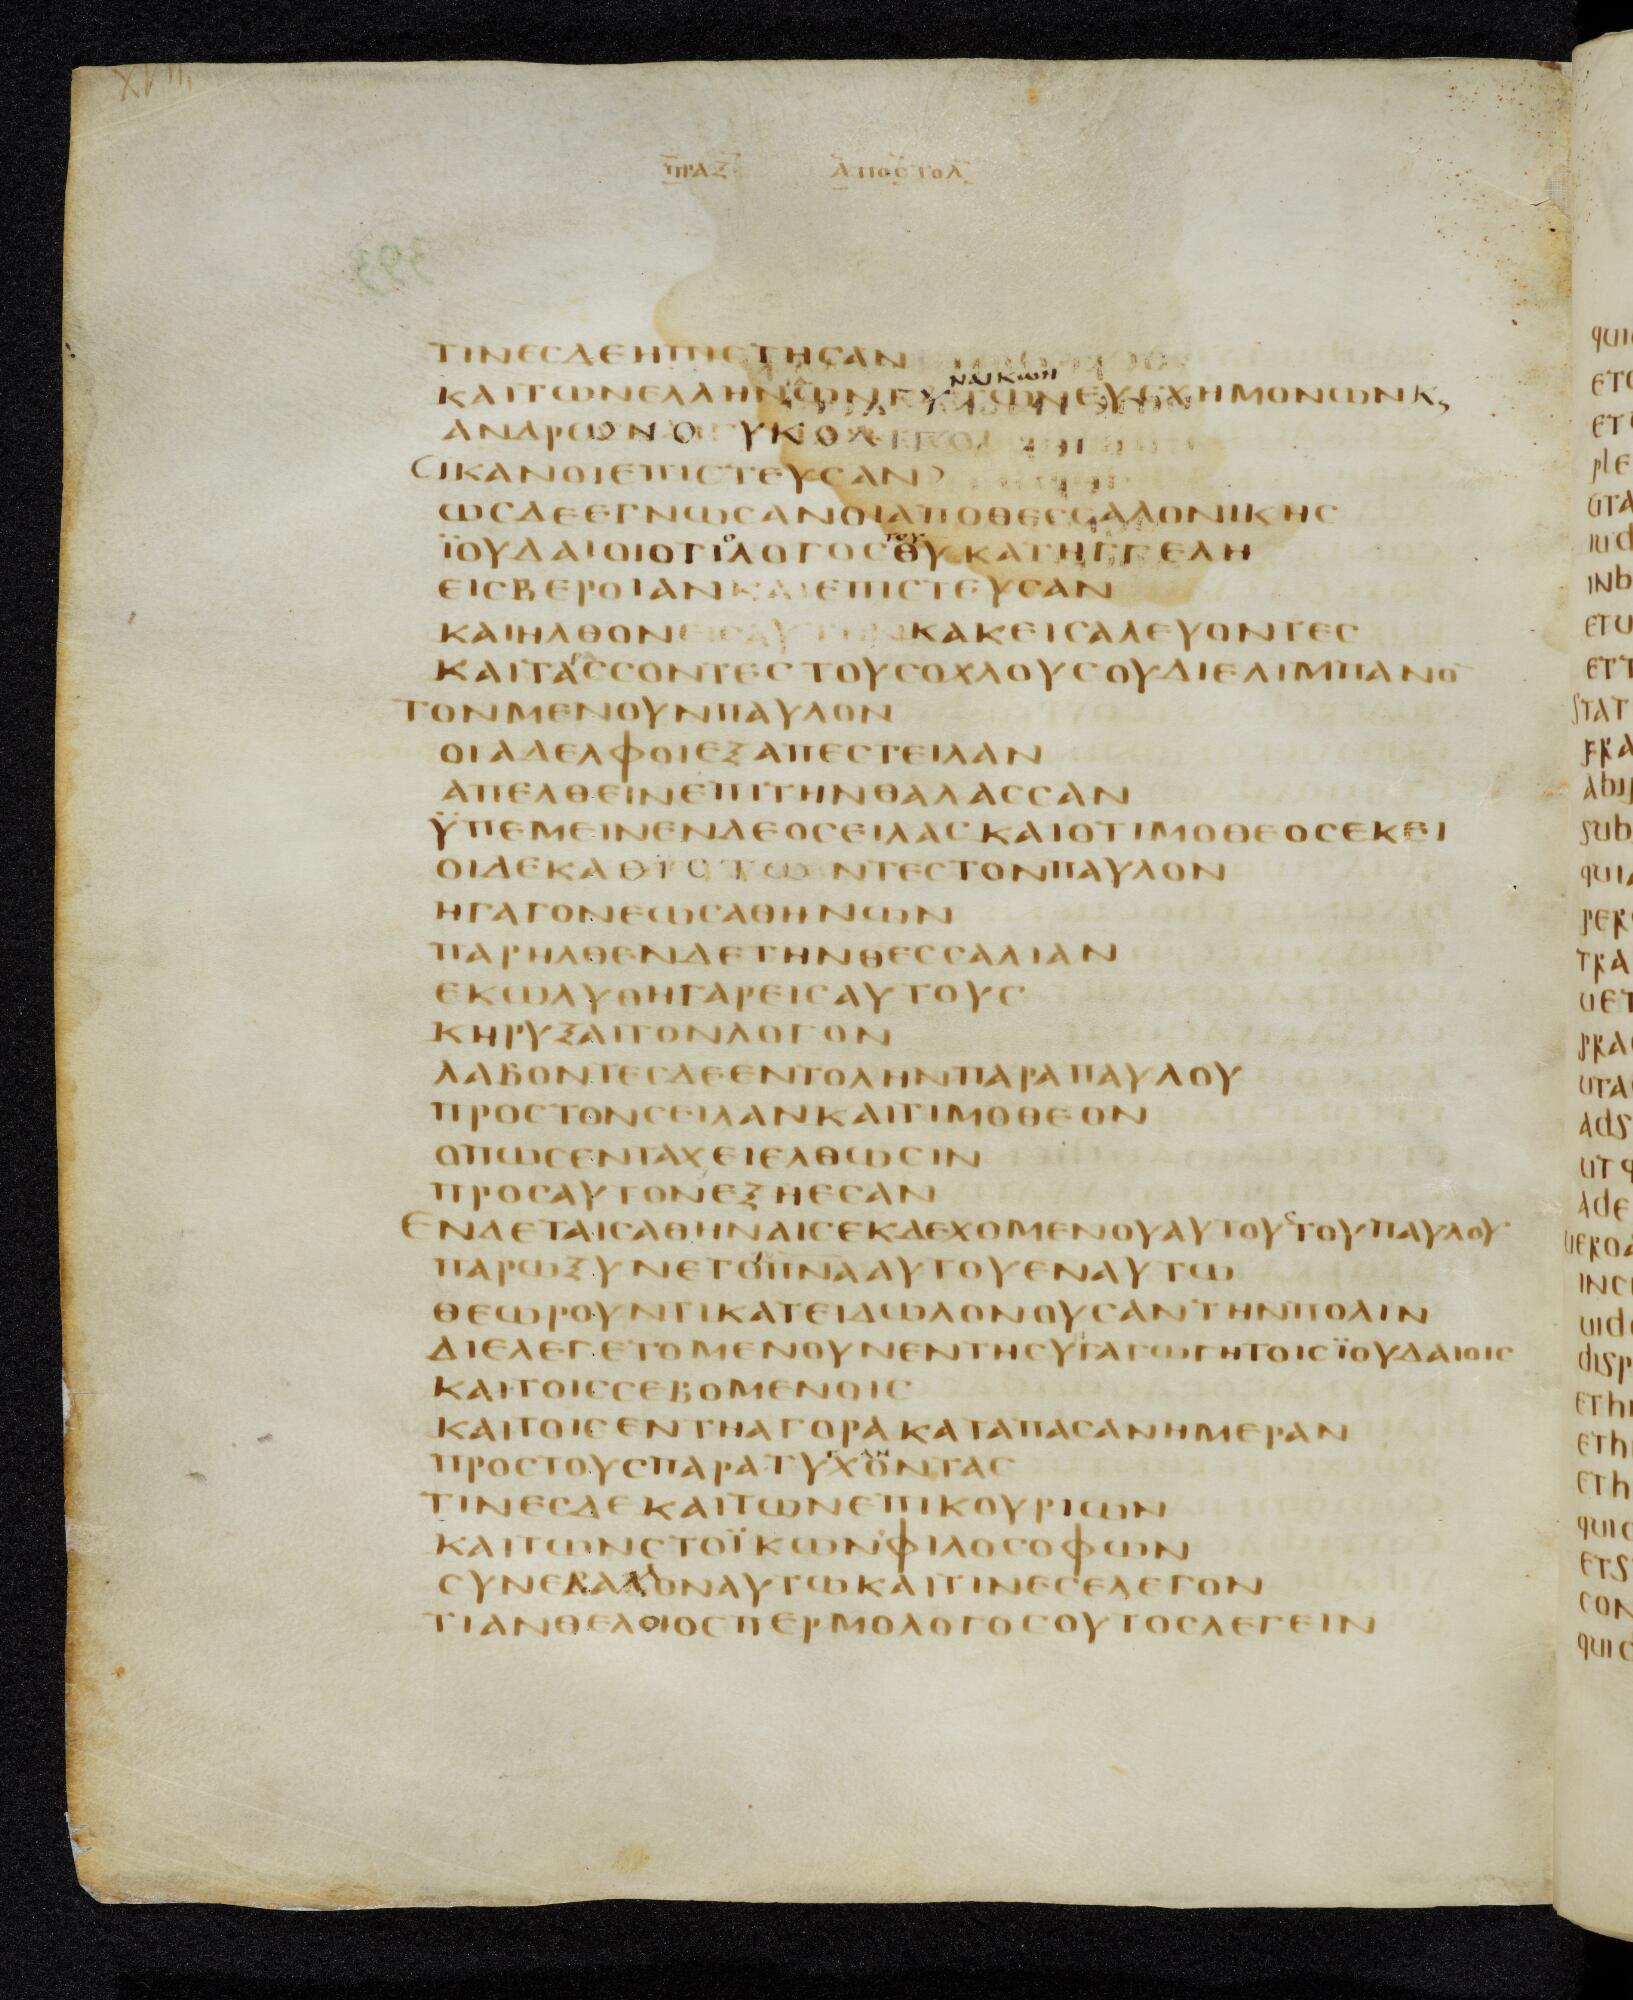 XVIII
ΠΡΑΞ ΑΠΟΣΤΟΛ
393
ΤΙΝΕϹΔΕΗΠΙϹΤΗϹΑΝ
ΚΑΙΤΩΝΕΛΛΗΝΩΝΓΥΝΑΙΚΩΝΤΩΝΕΥϹΧΗΜΟΝΩΝΚϚ
ΑΝΔΡΩΝΟΥΚΟΛΙΓΟΙ
ΙΚΑΝΟΙΕΠΙϹΤΕΥϹΑΝ
ΩϹΔΕΕΓΝΩϹΑΝΟΙΑΠΟΘΕϹϹΑΛΟΝΙΚΗϹ
ΪΟΥΔΑΙΟΙΟΤΙΟΛΟΓΟϹΤΟΥΘΥΚΑΤΗΓΓΕΛΗ
ΕΙϹΒΕΡΟΙΑΝΚΑΙΕΠΙϹΤΕΥϹΑΝ
ΚΑΙΗΛΘΟΝΕΙϹΑΥΤΟΝΚΑΚΕΙϹΑΛΕΥΟΝΤΕϹ
ΚΑΙΤΑΡΑϹϹΟΝΤΕϹΤΟΥϹΟΧΛΟΥϹΟΥΔΙΕΛΙΜΠΑΝΟ̅
ΤΟΝΜΕΝΟΥΝΠΑΥΛΟΝ
ΟΙΑΔΕΛΦΟΙΕΞΑΠΕϹΤΕΙΛΑΝ
ΑΠΕΛΘΕΙΝΕΠΙΤΗΝΘΑΛΑϹϹΑΝ
ΫΠΕΜΕΙΝΕΝΔΕΟϹΕΙΛΑϹΚΑΙΟΤΙΜΟΘΕΟϹΕΚΕΙ
ΟΙΔΕΚΑΘΙϹΤΩΝΤΕϹΤΟΝΠΑΥΛΟΝ
ΗΓΑΓΟΝΕΩϹΑΘΗΝΩΝ
ΠΑΡΗΛΘΕΝΔΕΤΗΝΘΕϹϹΑΛΙΑΝ
ΕΚΩΛΥΘΗΓΑΡΕΙϹΑΥΤΟΥϹ
ΚΗΡΥΞΑΙΤΟΝΛΟΓΟΝ
ΛΑΒΟΝΤΕϹΔΕΕΝΤΟΛΗΝΠΑΡΑΠΑΥΛΟΥ
ΠΡΟϹΤΟΝϹΕΙΛΑΝΚΑΙΤΙΜΟΘΕΟΝ
ΟΠΩϹΕΝΤΑΧΕΙΕΛΘΩϹΙΝ
ΠΡΟϹΑΥΤΟΝΕΞΗΕϹΑΝ
ΕΝΔΕΤΑΙϹΑΘΗΝΑΙϹΕΚΔΕΧΟΜΕΝΟΥΑΥΤΟΥϹΤΟΥΠΑΥΛΟΥ
ΠΑΡΩΞΥΝΕΤΟΠΝΑΑΥΤΟΥΕΝΑΥΤΩ
ΘΕΩΡΟΥΝΤΙΚΑΤΕΙΔΩΛΟΝΟΥϹΑΝΤΗΝΠΟΛΙΝ
ΔΙΕΛΕΓΕΤΟΜΕΝΟΥΝΕΝΤΗϹΥΓΑΓΩΓΗΤΟΙϹΪΟΥΔΑΙΟΙϹ
ΚΑΙΤΟΙϹϹΕΒΟΜΕΝΟΙϹ
ΚΑΙΤΟΙϹΕΝΤΗΑΓΟΡΑΚΑΤΑΠΑϹΑΝΗΜΕΡΑΝ
ΠΡΟϹΤΟΥϹΠΑΡΑΤΥΧΟΝΤΑϹ
ΤΙΝΕϹΔΕΚΑΙΤΩΝΕΠΙΚΟΥΡΙΩΝ
ΚΑΙΤΩΝϹΤΟΪΚΩΝΦΙΛΟϹΟΦΩΝ
ϹΥΝΕΒΑΛΟΝΑΥΤΩΚΑΙΤΙΝΕϹΕΛΕΓΟΝ
ΤΙΑΝΘΕΛΟΙΟϹΠΕΡΜΟΛΟΓΟϹΟΥΤΟϹΛΕΓΕΙΝ